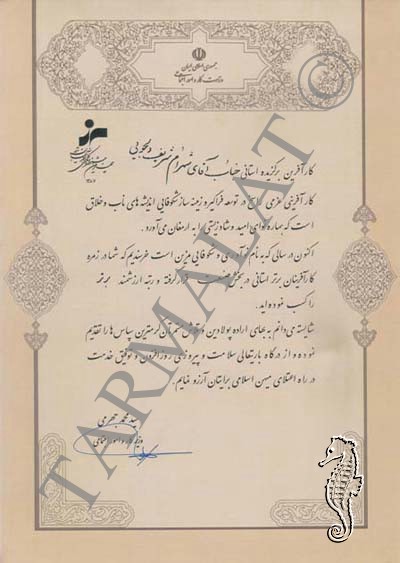 جمهوری اسلامی ایران
وزارت کار و امور اجتماعی
کارآفرین برگزیده استانی جناب آقای شهرام شریف
کارآفرینی عزمی راسخ در توسعه فراگیر و زمینه ساز شکوفایی اندیشه های ناب و خلاق
است که بهاره امید و شادزیستی را به ارمغان می آورد.
اکنون در سالی که به نام نوآوری و شکوفایی مزین است خرسندیم که شما در زمره
کارآفرینان برتر استانی در بخش صنعت قرار گرفته و رتبه ارزشمند
را کسب نموده اید.
شایسته می دانم به بهای اراده پولادین گرمترین سپاس ها را تقدیم
نموده و از درگاه باریتعالی سلامت و پیروزی روزافزون و توفیق خدمت
در راه اعتلای میهن اسلامی برایتان آرزو نمایم.
سید محمد جهرمی
وزیر کار و امور اجتماعی
TARMALAT ©